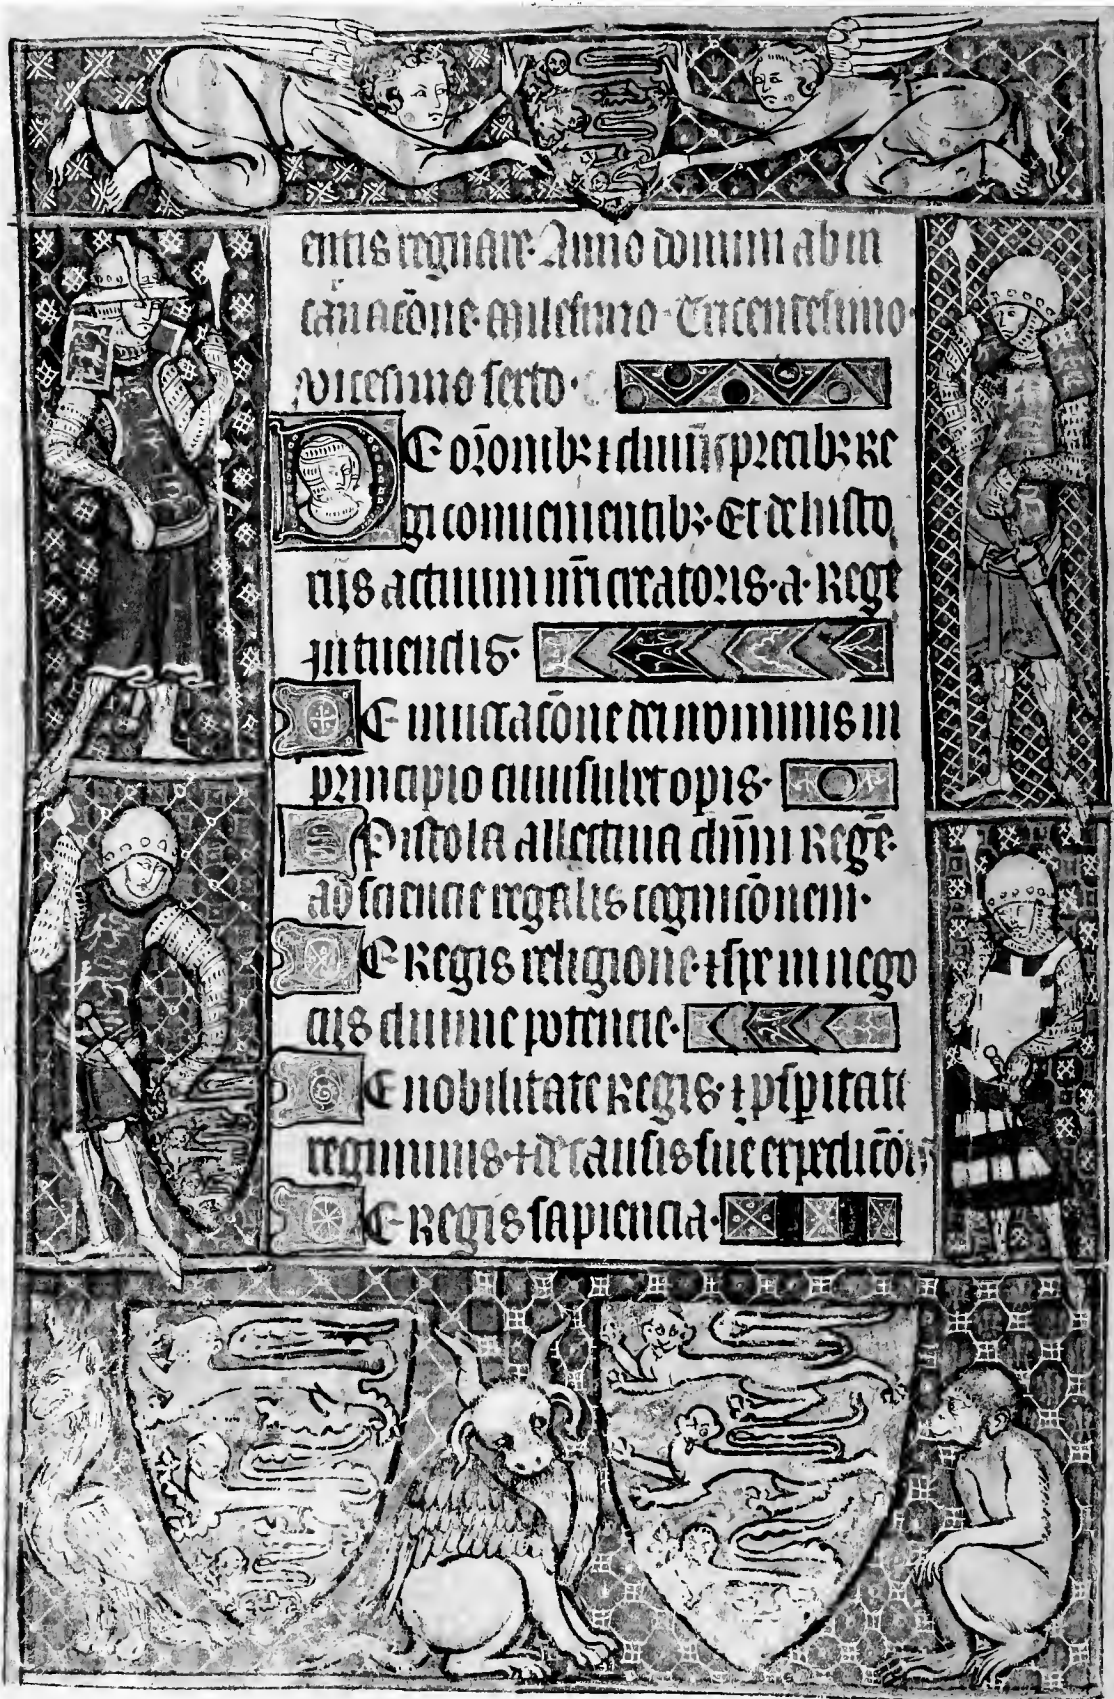 entis regnare. Anno domini ab in
carnacōne. Millesimo. Tricentesimo.
vicesimo sexto.
De or̄onib; ⁊ diuīs precib; Re
gi conuenientib;. Et de histo
riis actuum nrī creatoris. a. Rege
intuendis.
De inuocacōne dei nominis in
principio cuiuslibet opis.
Epistola allectiua dn̄m Regē.
ad sciencie regalis cognicōnem.
De Regis religione. ⁊ spe in nego
ciis diuine potencie.
De nobilitate Regis. ⁊ pspitate
regiminis. ⁊ de causis sue expedicōis
De Regis sapiencia.